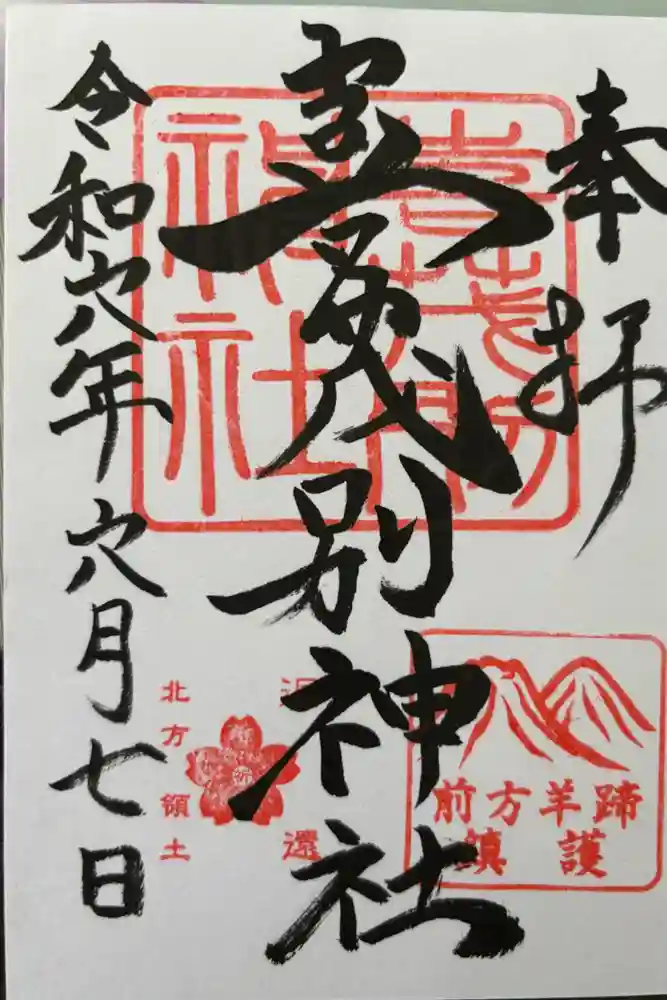 奉拝
喜茂別神社
令和六年六月七日
前方羊蹄
鎮護
還
北方領土